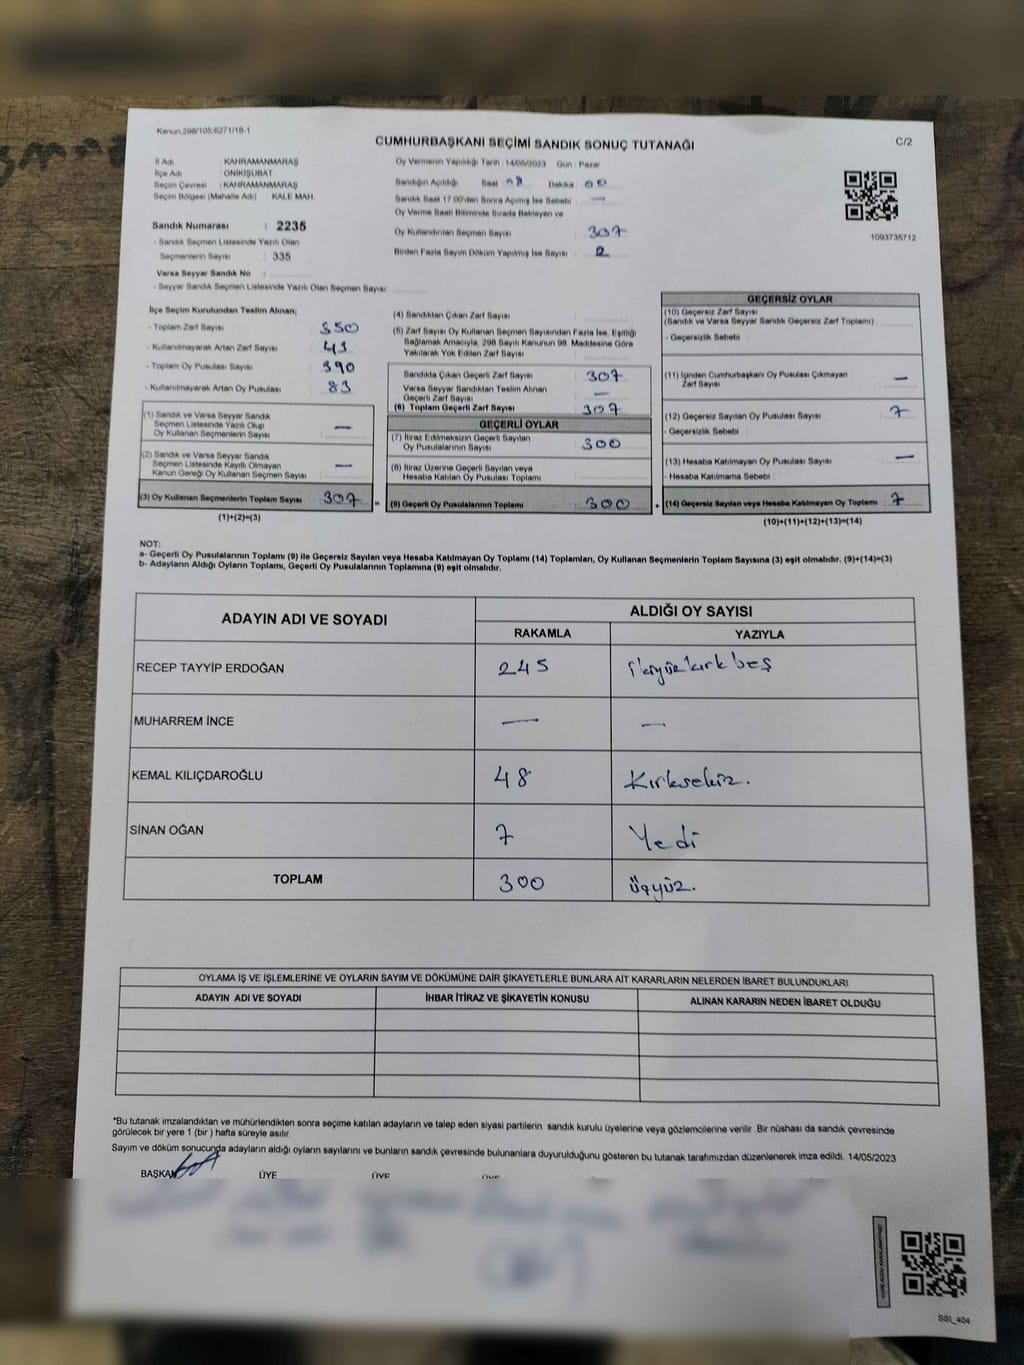 Kanun:298/105;6271/18-1
C/2
CUMHURBAŞKANI SEÇİMİ SANDIK SONUÇ TUTANAĞI
İl Adı : KAHRAMANMARAŞ
İlçe Adı : ONİKİŞUBAT
Seçim Çevresi : KAHRAMANMARAŞ
Seçim Bölgesi (Mahalle Adı) : KALE MAH.
Sandık Numarası : 2235
- Sandık Seçmen Listesinde Yazılı Olan
Seçmenlerin Sayısı : 335
Varsa Seyyar Sandık No :
- Seyyar Sandık Seçmen Listesinde Yazılı Olan Seçmen Sayısı:
Oy Vermenin Yapıldığı Tarih : 14/05/2023 Gün : Pazar
Sandığın Açıldığı Saat 08 Dakika 00
Sandık Saat 17:00'den Sonra Açımış İse Sebebi : —
Oy Verme Saati Bitiminde Sırada Bekleyen ve
Oy Kullandırılan Seçmen Sayısı : 307
Birden Fazla Sayım Döküm Yapılmış İse Sayısı : 2
1093735712
İlçe Seçim Kurulundan Teslim Alınan;
- Toplam Zarf Sayısı : 350
- Kullanılmayarak Artan Zarf Sayısı : 43
- Toplam Oy Pusulası Sayısı : 390
- Kullanılmayarak Artan Oy Pusulası : 83
(1) Sandık ve Varsa Seyyar Sandık
Seçmen Listesinde Yazılı Olup
Oy Kullanan Seçmenlerin Sayısı : —
(2) Sandık ve Varsa Seyyar Sandık
Seçmen Listesinde Kayıtlı Olmayan
Kanun Gereği Oy Kullanan Seçmen Sayısı : —
(3) Oy Kullanan Seçmenlerin Toplam Sayısı : 307 =
(1)+(2)=(3)
(4) Sandıktan Çıkan Zarf Sayısı :
(5) Zarf Sayısı Oy Kullanan Seçmen Sayısından Fazla İse, Eşitliği
Sağlamak Amacıyla, 298 Sayılı Kanunun 98. Maddesine Göre
Yakılarak Yok Edilen Zarf Sayısı :
Sandıkta Çıkan Geçerli Zarf Sayısı : 307
Varsa Seyyar Sandıktan Teslim Alınan
Geçerli Zarf Sayısı : —
(6) Toplam Geçerli Zarf Sayısı : 307
GEÇERLİ OYLAR
(7) İtiraz Edilmeksizin Geçerli Sayılan
Oy Pusulalarının Sayısı : 300
(8) İtiraz Üzerine Geçerli Sayılan veya
Hesaba Katılan Oy Pusulası Toplamı :
(9) Geçerli Oy Pusulalarının Toplamı : 300 +
GEÇERSİZ OYLAR
(10) Geçersiz Zarf Sayısı
(Sandık ve Varsa Seyyar Sandık Geçersiz Zarf Toplamı) :
- Geçersizlik Sebebi :
(11) İçinden Cumhurbaşkanı Oy Pusulası Çıkmayan
Zarf Sayısı : —
(12) Geçersiz Sayılan Oy Pusulası Sayısı : 7
- Geçersizlik Sebebi :
(13) Hesaba Katılmayan Oy Pusulası Sayısı : —
- Hesaba Katılmama Sebebi :
(14) Geçersiz Sayılan veya Hesaba Katılmayan Oy Toplamı : 7
(10)+(11)+(12)+(13)=(14)
NOT:
a- Geçerli Oy Pusulalarının Toplamı (9) ile Geçersiz Sayılan veya Hesaba Katılmayan Oy Toplamı (14) Toplamları, Oy Kullanan Seçmenlerin Toplam Sayısına (3) eşit olmalıdır. (9)+(14)=(3)
b- Adayların Aldığı Oyların Toplamı, Geçerli Oy Pusulalarının Toplamına (9) eşit olmalıdır.
ADAYIN ADI VE SOYADI
ALDIĞI OY SAYISI
RAKAMLA YAZIYLA
RECEP TAYYİP ERDOĞAN 245 İkiyüzkırkbeş
MUHARREM İNCE — —
KEMAL KILIÇDAROĞLU 48 Kırksekiz.
SİNAN OĞAN 7 Yedi
TOPLAM 300 üçyüz.
OYLAMA İŞ VE İŞLEMLERİNE VE OYLARIN SAYIM VE DÖKÜMÜNE DAİR ŞİKAYETLERLE BUNLARA AİT KARARLARIN NELERDEN İBARET BULUNDUKLARI
ADAYIN ADI VE SOYADI İHBAR İTİRAZ VE ŞİKAYETİN KONUSU ALINAN KARARIN NEDEN İBARET OLDUĞU
*Bu tutanak imzalandıktan ve mühürlendikten sonra seçime katılan adayların ve talep eden siyasi partilerin sandık kurulu üyelerine veya gözlemcilerine verilir. Bir nüshası da sandık çevresinde
görülecek bir yere 1 (bir ) hafta süreyle asılır.
Sayım ve döküm sonucunda adayların aldığı oyların sayılarını ve bunların sandık çevresinde bulunanlara duyurulduğunu gösteren bu tutanak tarafımızdan düzenlenerek imza edildi. 14/05/2023
BAŞKAN ÜYE ÜYE ÜYE
SSI_404